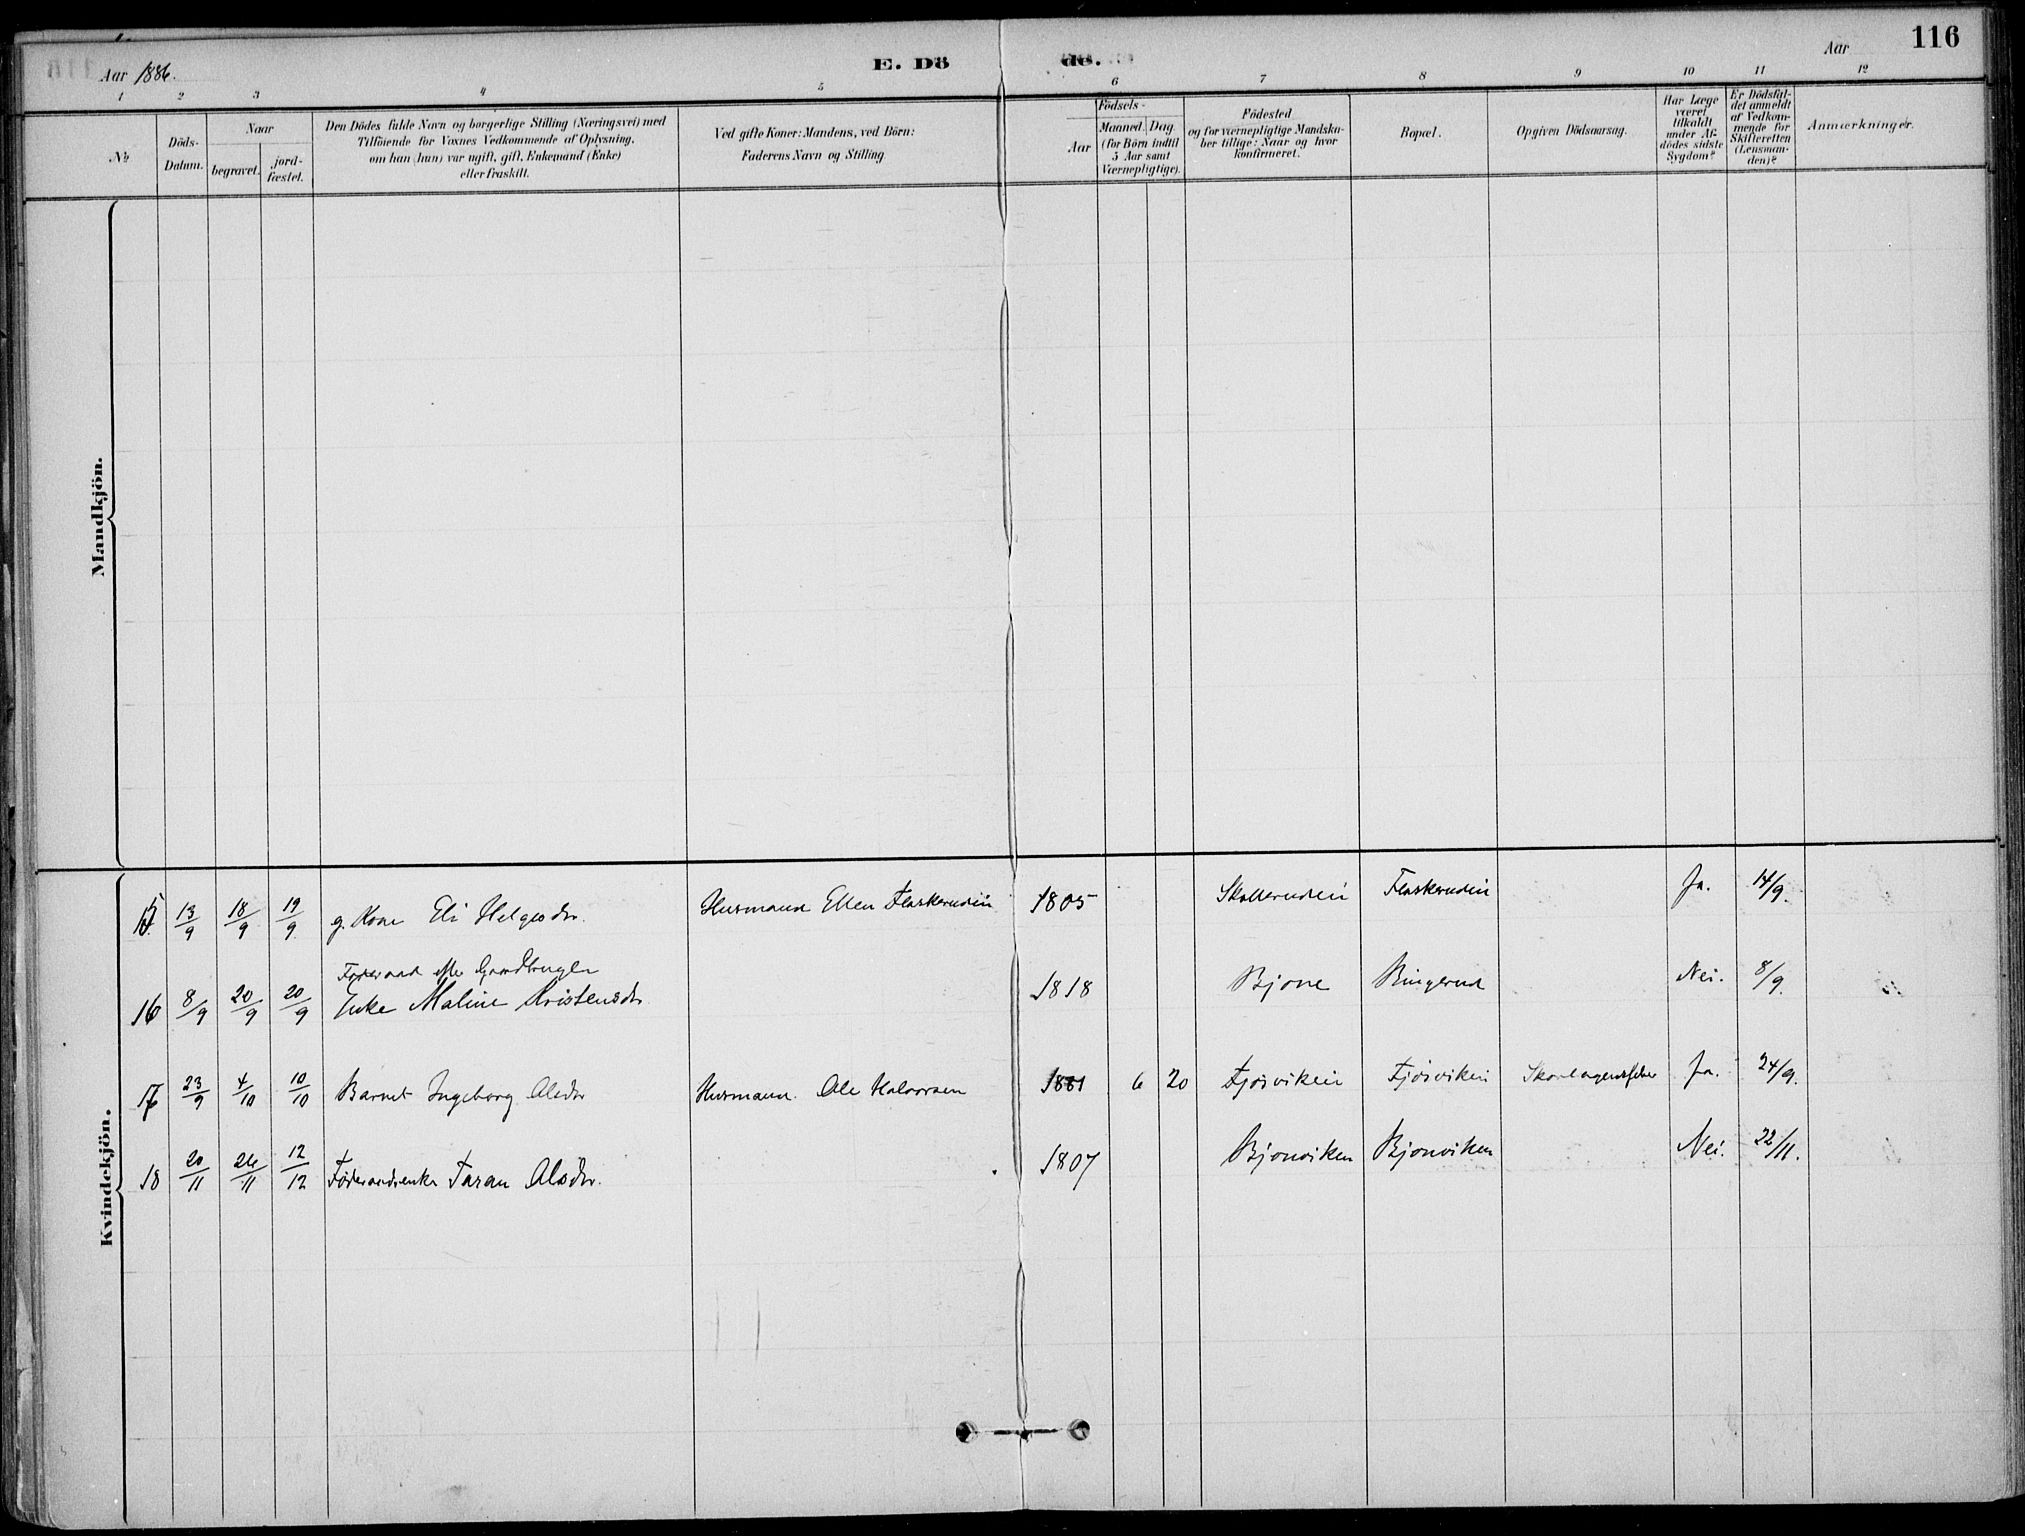 116
Aar 1886.
E. Dö de.
Aar
1 2 3 4 5 6 7 8 9 10 11 12
No
Döds-
Datum.
Naar
begravet.
jord-
fæstet.
Den Dödes fulde Navn og borgerlige Stilling (Næringsvei) med
Tilföiende for Voxnes Vedkommende af Oplysning,
om han (hun) var ugift, gift, Enkemand (Enke)
eller fraskilt.
Ved gifte Koner: Mandens, ved Börn:
Faderens Navn og Stilling
Födsels-
Aar
Maaned. Dag
(for Börn indtil
5 Aar samt
Værnepligtige).
Födested
og for værnepligtige Mandska-
ber tillige: Naar og hvor
konfirmeret.
Bopæl.
Opgiven Dödsaarsag.
Har Læge
været
tilkaldt
under Af-
dödes sidste
Sygdom?
Er Dödsfal-
det anmeldt
af Vedkom-
mende for
Skifteretten
(Lensman-
den)?
Anmærkninger.
Mandkjön.
Kvindekjön.
15 13/9 18/9 19/9 g. Kone Eli Helgesdr. Husmand Ellen Flaskerudei 1805 Flaskerudei Ja. 14/9.
16 8/9 20/9 20/9 Føderaad
Enke Maline Kristensdr. 1818 Bjone Ringerud Nei. 8/9.
17 23/9 4/10 10/10 Barnet Ingeborg Olsdr Husmand. Ole Halvorsen 1881 6 20 Fjösvikein Fjösviken Skarlagensfeber Ja. 24/9.
18 20/11 26/11 12/12 Føderaadsenke Taran Olsdr. 1807 Bjonviken Bjonviken Nei. 22/11.